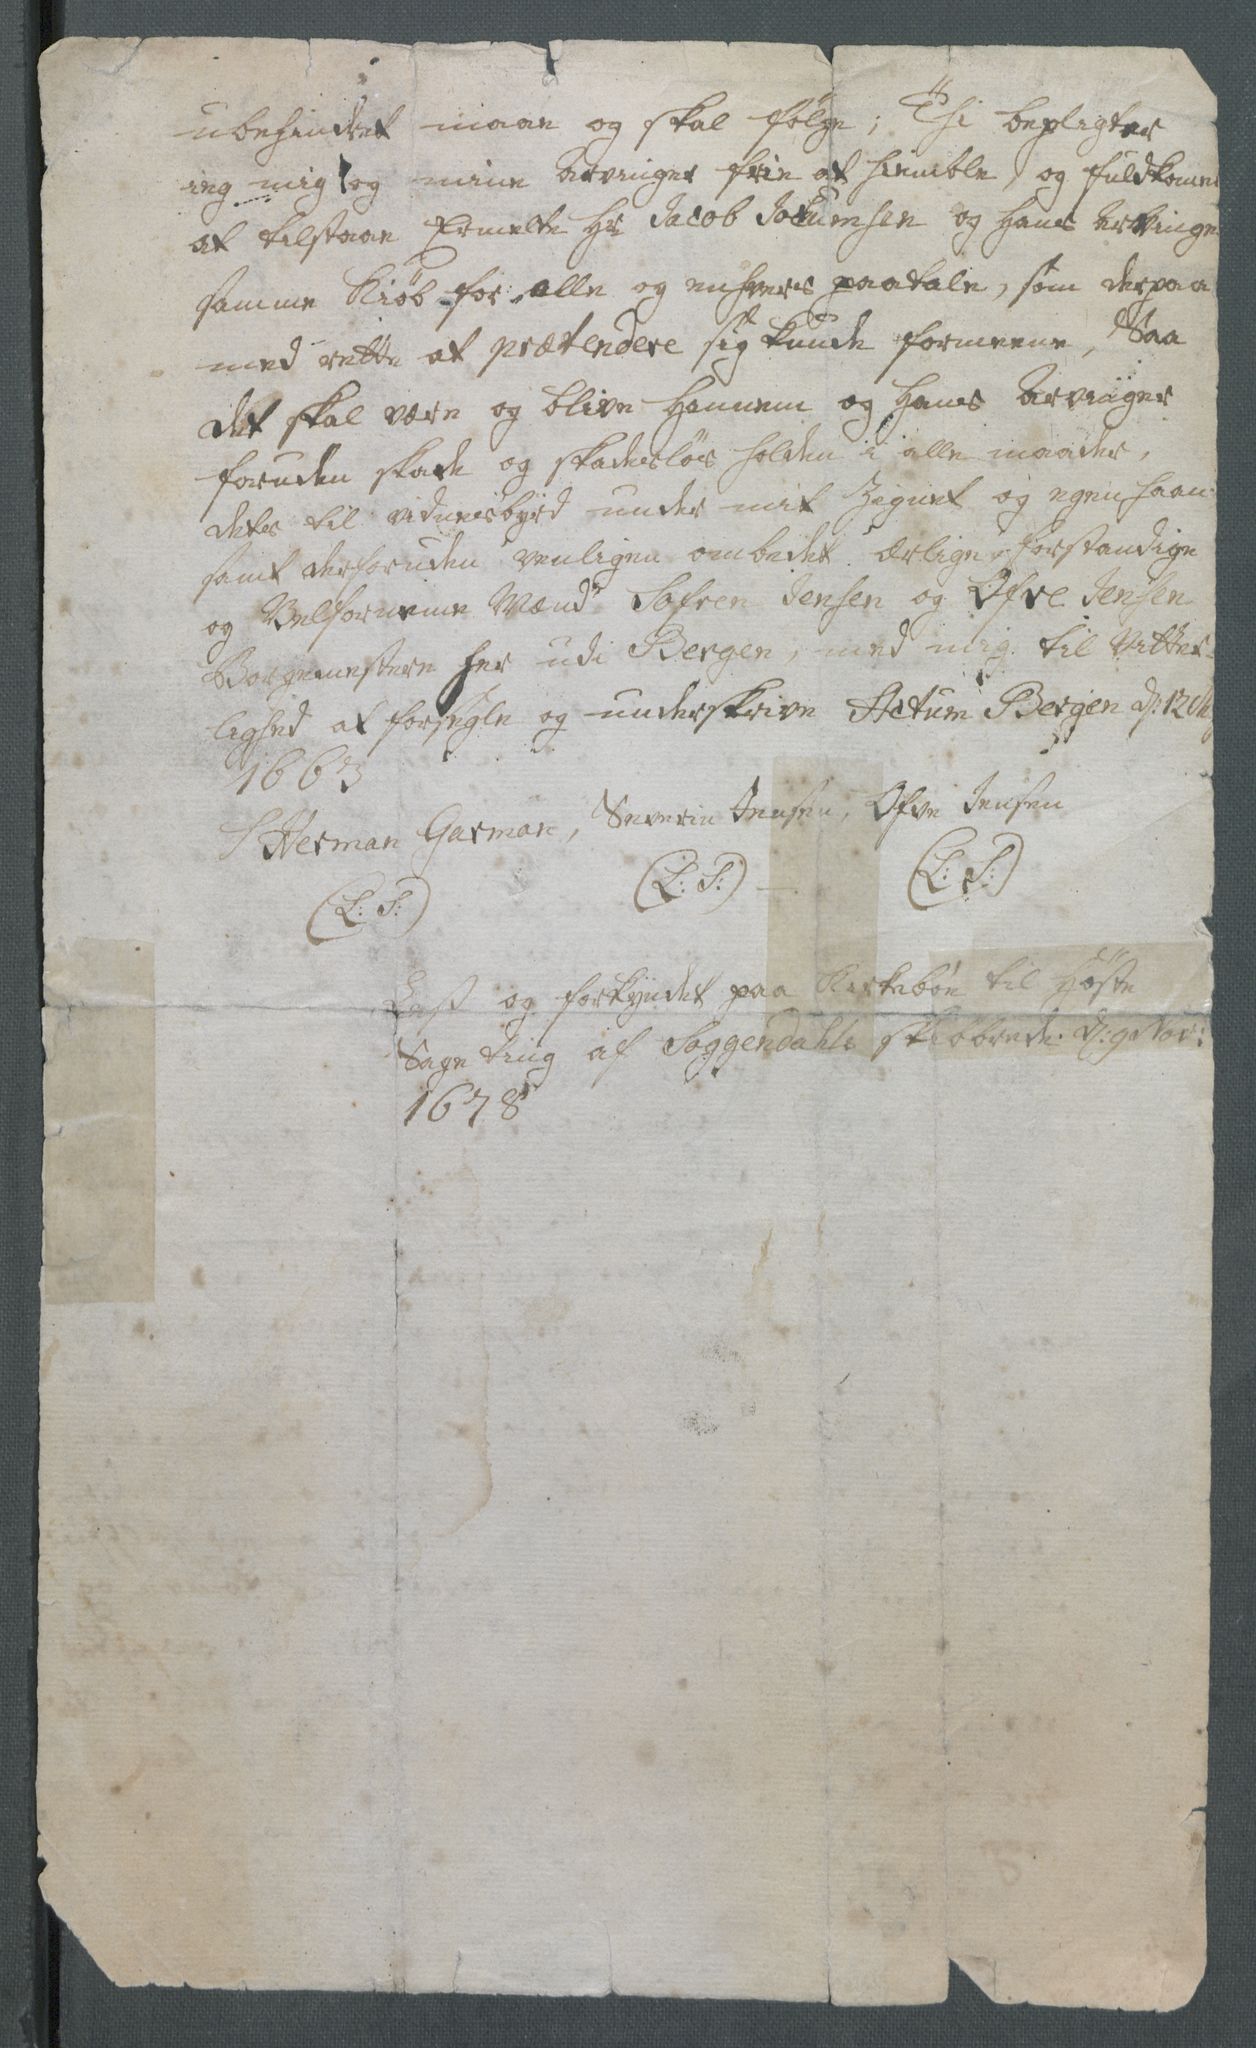 ubehindret maae og skal følge; Thi bepligter
ieg mig og mine Arvinger frie at hiemble, og fuldkomme
at tilstaae Ermelte Hr Jacob Jokumsen og Hans Arvinge
samme Kiöb for alle og enhvers paatale, som derpaa
med rette at prætendere sig kunde formeene, Saa
det skal være og blive Hannem og Hans Arvinger
foruden skade og skadeslös holden i alle maader,
detes til vidnesbyrd under mit Zignet og egen haan
samt derforuden venligen ombedet ærlige, forstandige
og Velfornemme Mænd Sofren Jensen og Ofve Jensen
Borgemestere her udi Bergen, med mig til Vitter-
lighed at forsegle og underskrive Actum Bergen d: 12
1663
Herman Garman, Severin Jensen, Ofve Jensen
(L: S:) (L: S:) (L: S:)
Læst og forkyndet paa Kirkeböe til Höste
Sage ting af Soggendahls skibbrede. d: 9 Nov:
1678